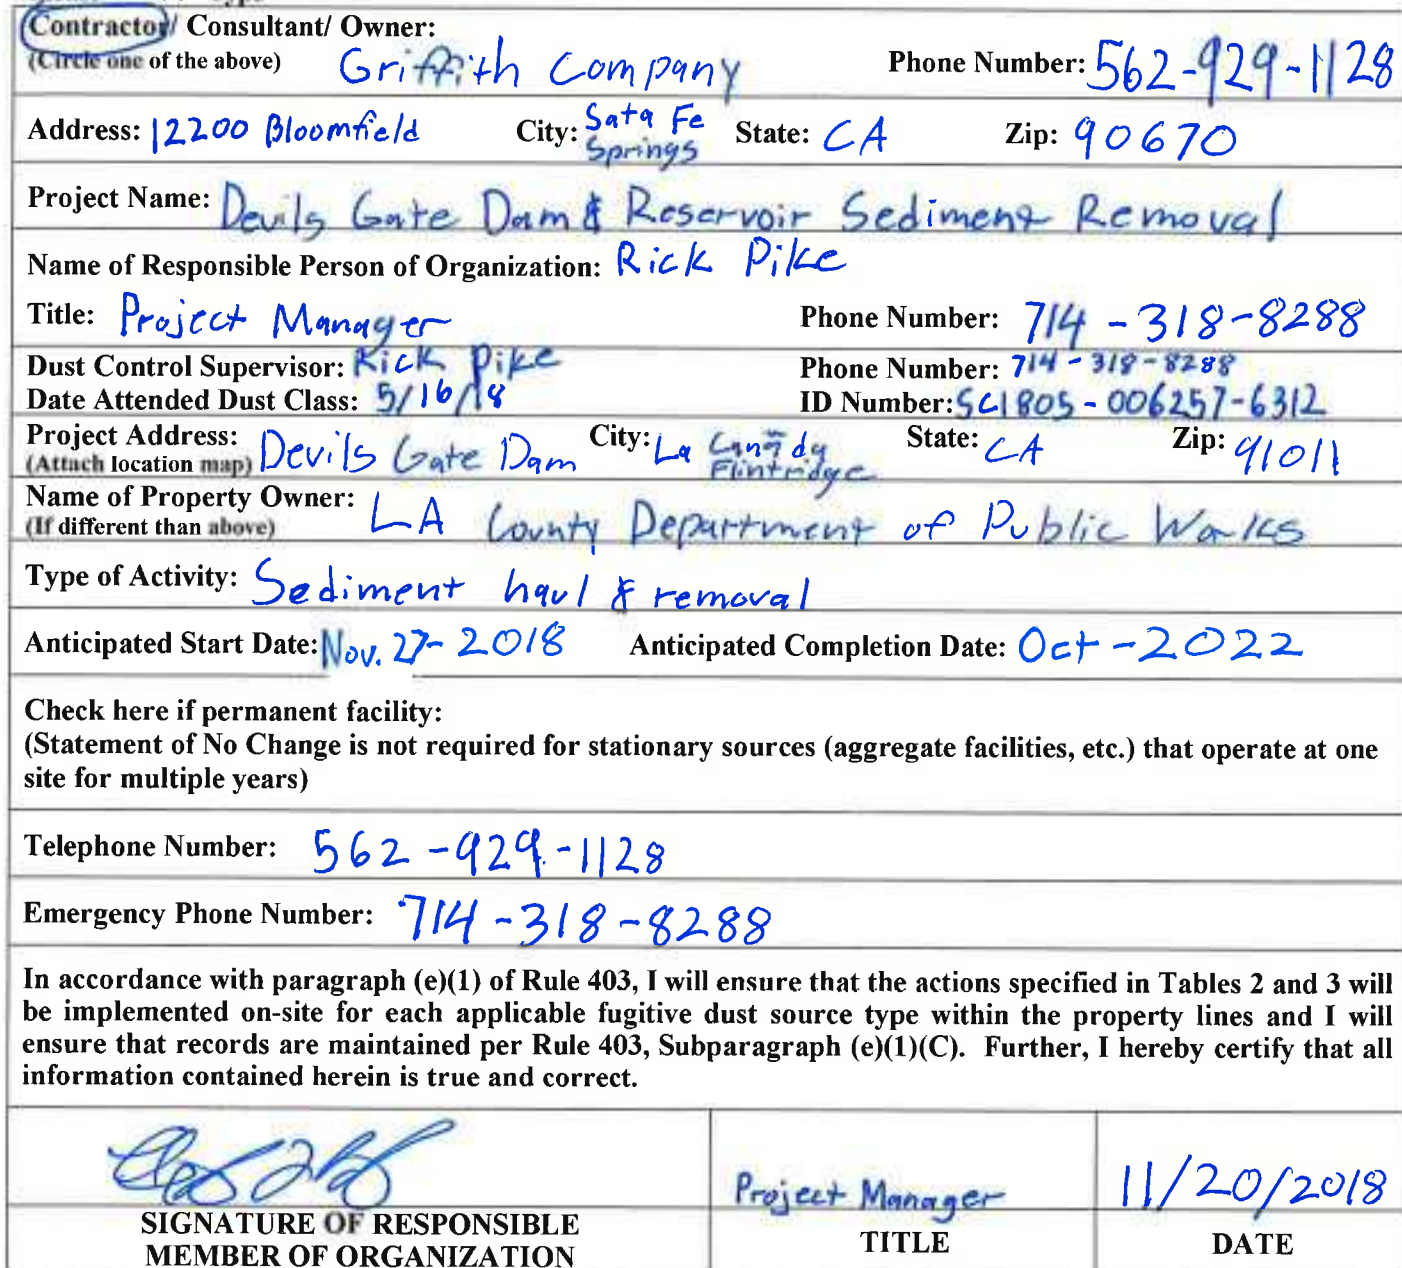 Contractor/ Consultant/ Owner:
(Circle one of the above) Griffith Company Phone Number: 562-929-1128
Address: 12200 Bloomfield City: Sata Fe Springs State: CA Zip: 90670
Project Name: Devils Gate Dam & Reservoir Sediment Removal
Name of Responsible Person of Organization: Rick Pike
Title: Project Manager Phone Number: 714-318-8288
Dust Control Supervisor: Rick Pike Phone Number: 714-318-8288
Date Attended Dust Class: 5/16/18 ID Number: SC1805-006257-6312
Project Address: Devils Gate Dam City: La Cañada Flintridge State: CA Zip: 91011
(Attach location map)
Name of Property Owner: LA County Department of Public Works
(If different than above)
Type of Activity: Sediment haul & removal
Anticipated Start Date: Nov. 27-2018 Anticipated Completion Date: Oct-2022
Check here if permanent facility:
(Statement of No Change is not required for stationary sources (aggregate facilities, etc.) that operate at one
site for multiple years)
Telephone Number: 562-929-1128
Emergency Phone Number: 714-318-8288
In accordance with paragraph (e)(1) of Rule 403, I will ensure that the actions specified in Tables 2 and 3 will
be implemented on-site for each applicable fugitive dust source type within the property lines and I will
ensure that records are maintained per Rule 403, Subparagraph (e)(1)(C). Further, I hereby certify that all
information contained herein is true and correct.
Project Manager 11/20/2018
SIGNATURE OF RESPONSIBLE
MEMBER OF ORGANIZATION
TITLE
DATE